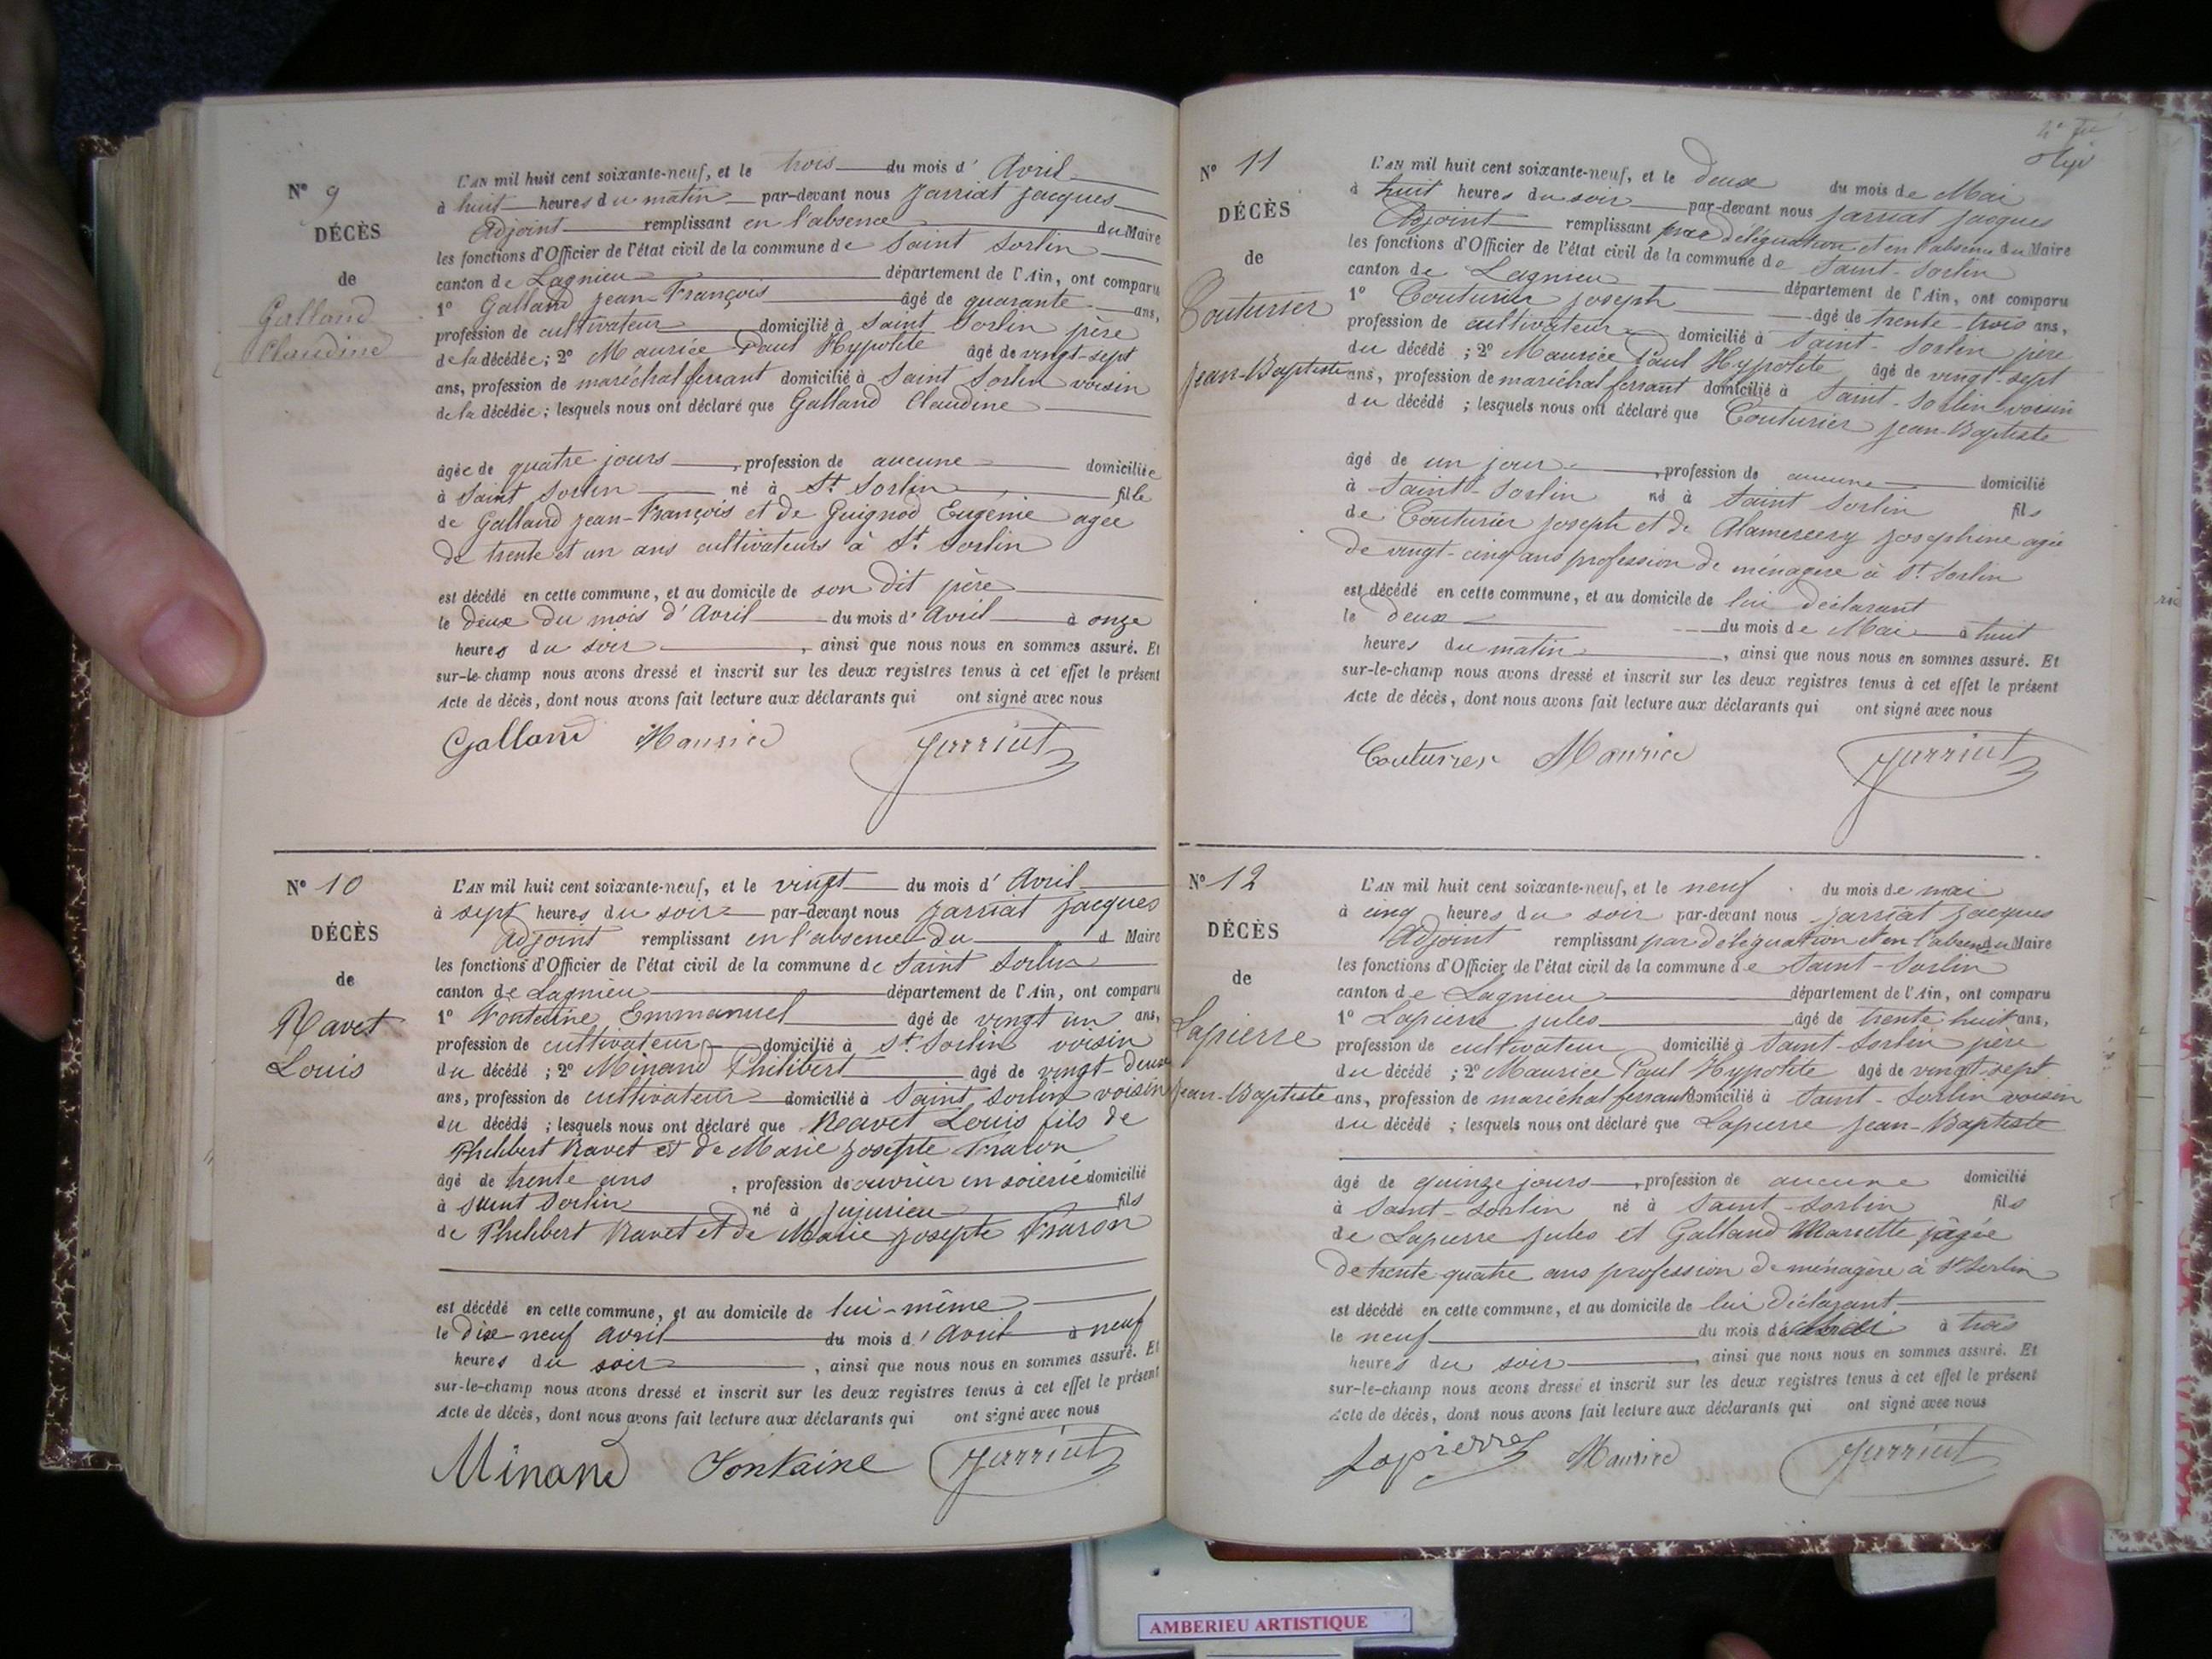 N° 9
DÉCÈS
de
Galland
Claudine
L'AN mil huit cent soixante-neuf, et le trois du mois d' Avril
à huit heures du matin par-devant nous Jarriat Jacques
Adjoint remplissant en l'absence du Maire
les fonctions d'Officier de l'état civil de la commune de Saint Sorlin
canton de Lagnieu département de l'Ain, ont comparu
1° Galland Jean-François âgé de quarante ans,
profession de cultivateur domicilié à Saint Sorlin père
de la décédée ; 2° Maurice Paul Hypolite âgé de vingt-sept
ans, profession de maréchal ferrant domicilié à Saint Sorlin voisin
de la décédée ; lesquels nous ont déclaré que Galland Claudine
âgée de quatre jours, profession de aucune domiciliée
à Saint Sorlin né à St. Sorlin fille
de Galland Jean-François et de Guignod Eugénie agée
de trente et un ans cultivateurs à St. Sorlin
est décédé en cette commune, et au domicile de son dit père
le deux du mois d'Avril du mois d' Avril à onze
heures du soir, ainsi que nous nous en sommes assuré. Et
sur-le-champ nous avons dressé et inscrit sur les deux registres tenus à cet effet le présent
Acte de décès, dont nous avons fait lecture aux déclarants qui ont signé avec nous
Galland Maurice Jarriat
N° 10
DÉCÈS
de
Ravet
Louis
L'AN mil huit cent soixante-neuf, et le vingt du mois d' Avril
à sept heures du soir par-devant nous Jarriat Jacques
Adjoint remplissant en l'absence du d Maire
les fonctions d'Officier de l'état civil de la commune de Saint Sorlin
canton de Lagnieu département de l'Ain, ont comparu
1° Fontaine Emmanuel âgé de vingt un ans,
profession de cultivateur domicilié à St. Sorlin voisin
du décédé ; 2° Minand Philibert âgé de vingt-deux
ans, profession de cultivateur domicilié à Saint Sorlin voisin
du décédé ; lesquels nous ont déclaré que Ravet Louis fils de
Philibert Ravet et de Marie Josepte
âgé de trente ans, profession de ouvrier en soierie domicilié
à Saint Sorlin né à Jujurieu fils
de Philibert Ravet et de Marie Josepte
est décédé en cette commune, et au domicile de lui-même
le dix neuf avril du mois d' Avril à neuf
heures du soir, ainsi que nous nous en sommes assuré. Et
sur-le-champ nous avons dressé et inscrit sur les deux registres tenus à cet effet le présent
Acte de décès, dont nous avons fait lecture aux déclarants qui ont signé avec nous
Minand Fontaine Jarriat
N° 11
DÉCÈS
de
Couturier
Jean-Baptiste
L'AN mil huit cent soixante-neuf, et le deux du mois de Mai
à huit heures du soir par-devant nous Jarriat Jacques
Adjoint remplissant par délégation et en l'absence du Maire
les fonctions d'Officier de l'état civil de la commune de Saint-Sorlin
canton de Lagnieu département de l'Ain, ont comparu
1° Couturier Joseph âgé de trente-trois ans,
profession de cultivateur domicilié à Saint-Sorlin père
du décédé ; 2° Maurice Paul Hypolite âgé de vingt-sept
ans, profession de maréchal ferrant domicilié à Saint-Sorlin voisin
du décédé ; lesquels nous ont déclaré que Couturier Jean-Baptiste
âgé de un jour, profession de aucune domicilié
à Saint-Sorlin né à Saint Sorlin fils
de Couturier Joseph et de Alamercery Josephine agée
de vingt-cinq ans profession de ménagère à St. Sorlin
est décédé en cette commune, et au domicile de lui déclarant
le deux du mois de Mai à huit
heures du matin, ainsi que nous nous en sommes assuré. Et
sur-le-champ nous avons dressé et inscrit sur les deux registres tenus à cet effet le présent
Acte de décès, dont nous avons fait lecture aux déclarants qui ont signé avec nous
Couturier Maurice Jarriat
N° 12
DÉCÈS
de
Lapierre
Jean-Baptiste
L'AN mil huit cent soixante-neuf, et le neuf du mois de mai
à cinq heures du soir par-devant nous Jarriat Jacques
Adjoint remplissant par délégation et en l'absence du Maire
les fonctions d'Officier de l'état civil de la commune de Saint-Sorlin
canton de Lagnieu département de l'Ain, ont comparu
1° Lapierre Jules âgé de trente huit ans,
profession de cultivateur domicilié à Saint-Sorlin père
du décédé ; 2° Maurice Paul Hypolite âgé de vingt-sept
ans, profession de maréchal ferrant domicilié à Saint-Sorlin voisin
du décédé ; lesquels nous ont déclaré que Lapierre Jean-Baptiste
âgé de quinze jours, profession de aucune domicilié
à Saint-Sorlin né à Saint-Sorlin fils
de Lapierre Jules et Galland Mariette agée
de trente quatre ans profession de ménagère à St Sorlin
est décédé en cette commune, et au domicile de lui déclarant
le neuf du mois de à trois
heures du soir, ainsi que nous nous en sommes assuré. Et
sur-le-champ nous avons dressé et inscrit sur les deux registres tenus à cet effet le présent
Acte de décès, dont nous avons fait lecture aux déclarants qui ont signé avec nous
Lapierre Maurice Jarriat
AMBERIEU ARTISTIQUE